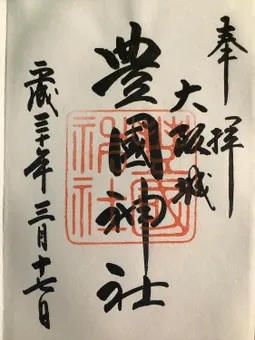 奉拝
大阪城
豊國神社
平成三十年三月十七日